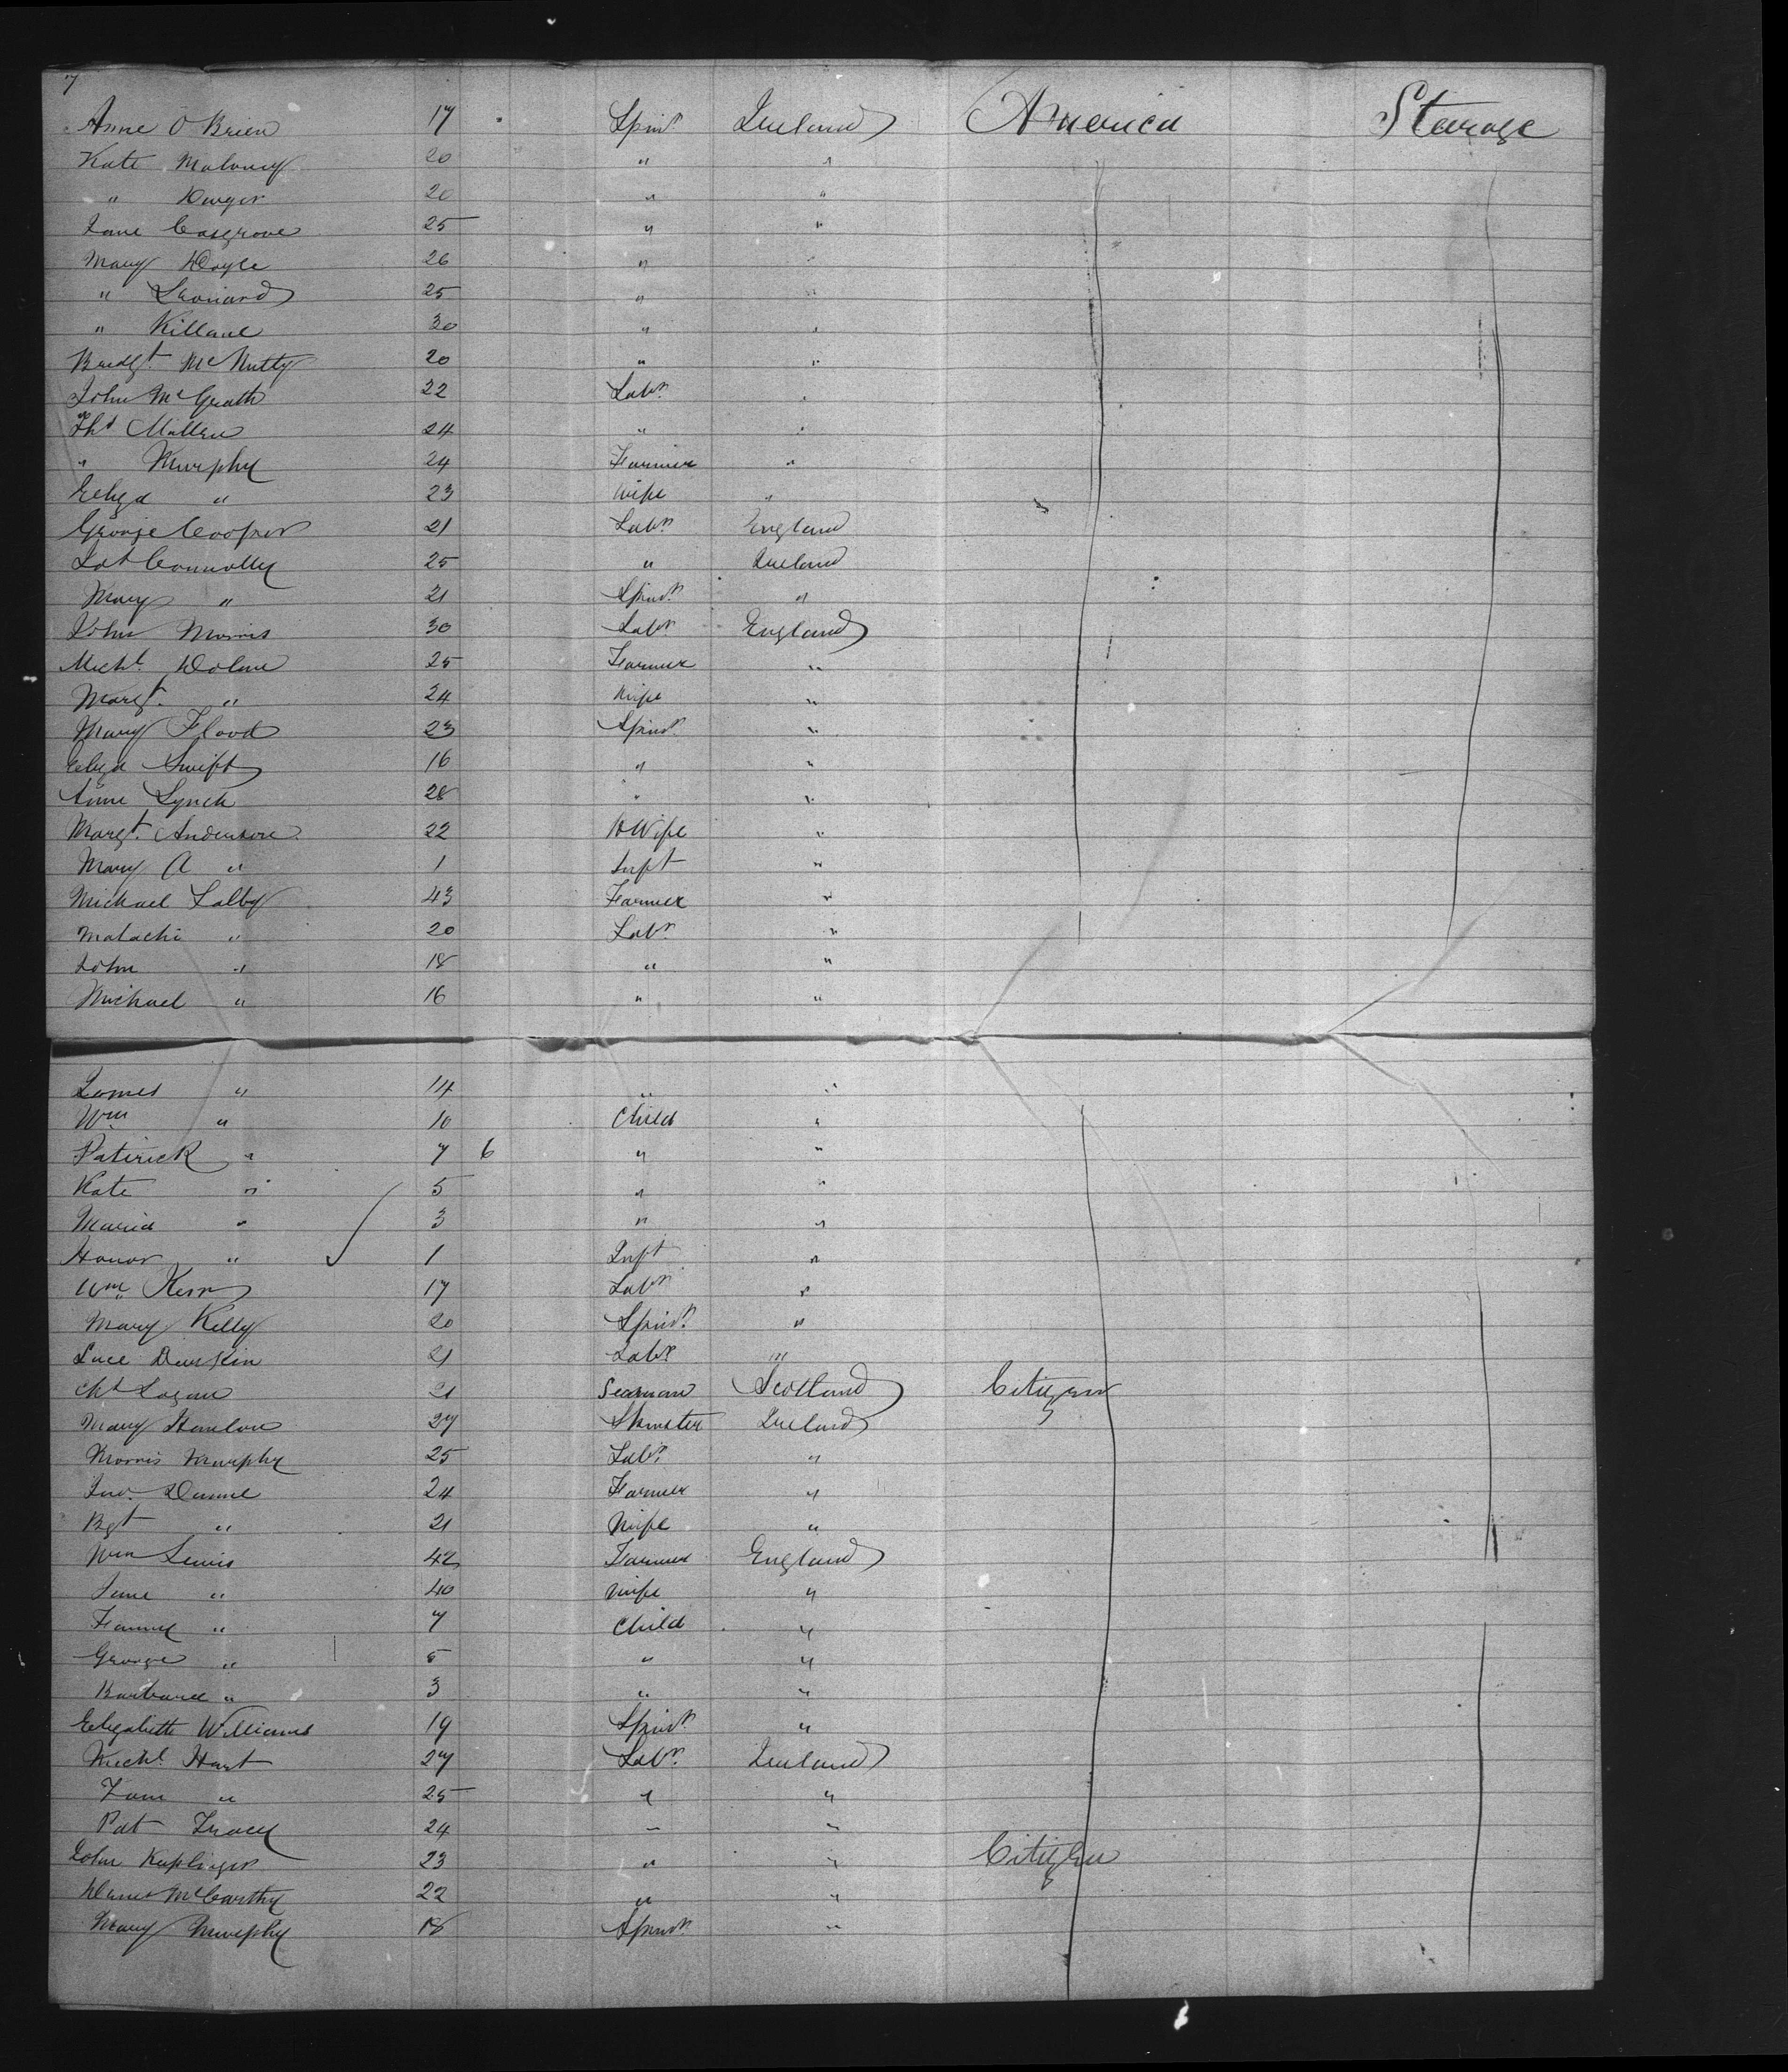 7
Anne O'Brien 17 Spinr Ireland America Steerage
Kate Maloney 20 " "
" Dwyer 20 " "
Jane Cosgrove 25 " "
Mary Doyle 26 " "
" Leonard 25 " "
" Killane 30 " "
Bredgt McNutty 20 " "
John McGrath 22 Labr "
Ths Mullen 24 " "
" Murphy 24 Farmer "
Eliza " 23 Wife "
George Cooper 21 Labr England
Connolly 25 " Ireland
Mary " 21 Spinr "
John Morris 30 Labr England
Michl Dolme 25 Farmer "
Margt " 24 Wife "
Mary Flood 23 Spinr "
Eliza Swift 16 " "
Anne Lynch 28 " "
Margt Anderson 22 HWife "
Mary A " 1 Inft "
Michael Lally 43 Farmer "
Malachi " 20 Labr "
John " 18 " "
Michael " 16 " "
James " 14 " "
Wm " 10 Child "
Patrick " 7 6 " "
Kate " 5 " "
Maria " 3 " "
Honor " 1 Inft "
Wm Kern 17 Labr "
Mary Kelly 20 Spinr "
Luce Durkin 21 Labr "
Logan 21 Seaman Scotland Citizen
Mary Hanlon 27 Spinster Ireland
Morris Murphy 25 Labr "
Jno. Dunne 24 Farmer "
Bgt " 21 Wife "
Wm Lewis 42 Farmer England
Jane " 40 Wife "
Fanny " 7 Child "
George " 5 " "
Barbara " 3 " "
Elizabeth Williams 19 Spinr "
Michl Hart 27 Labr Ireland
" 25 " "
Pat Tracey 24 " "
John Keplinger 23 " " Citizen
McCarthy 22 " "
Mary Murphy 18 Spinr "